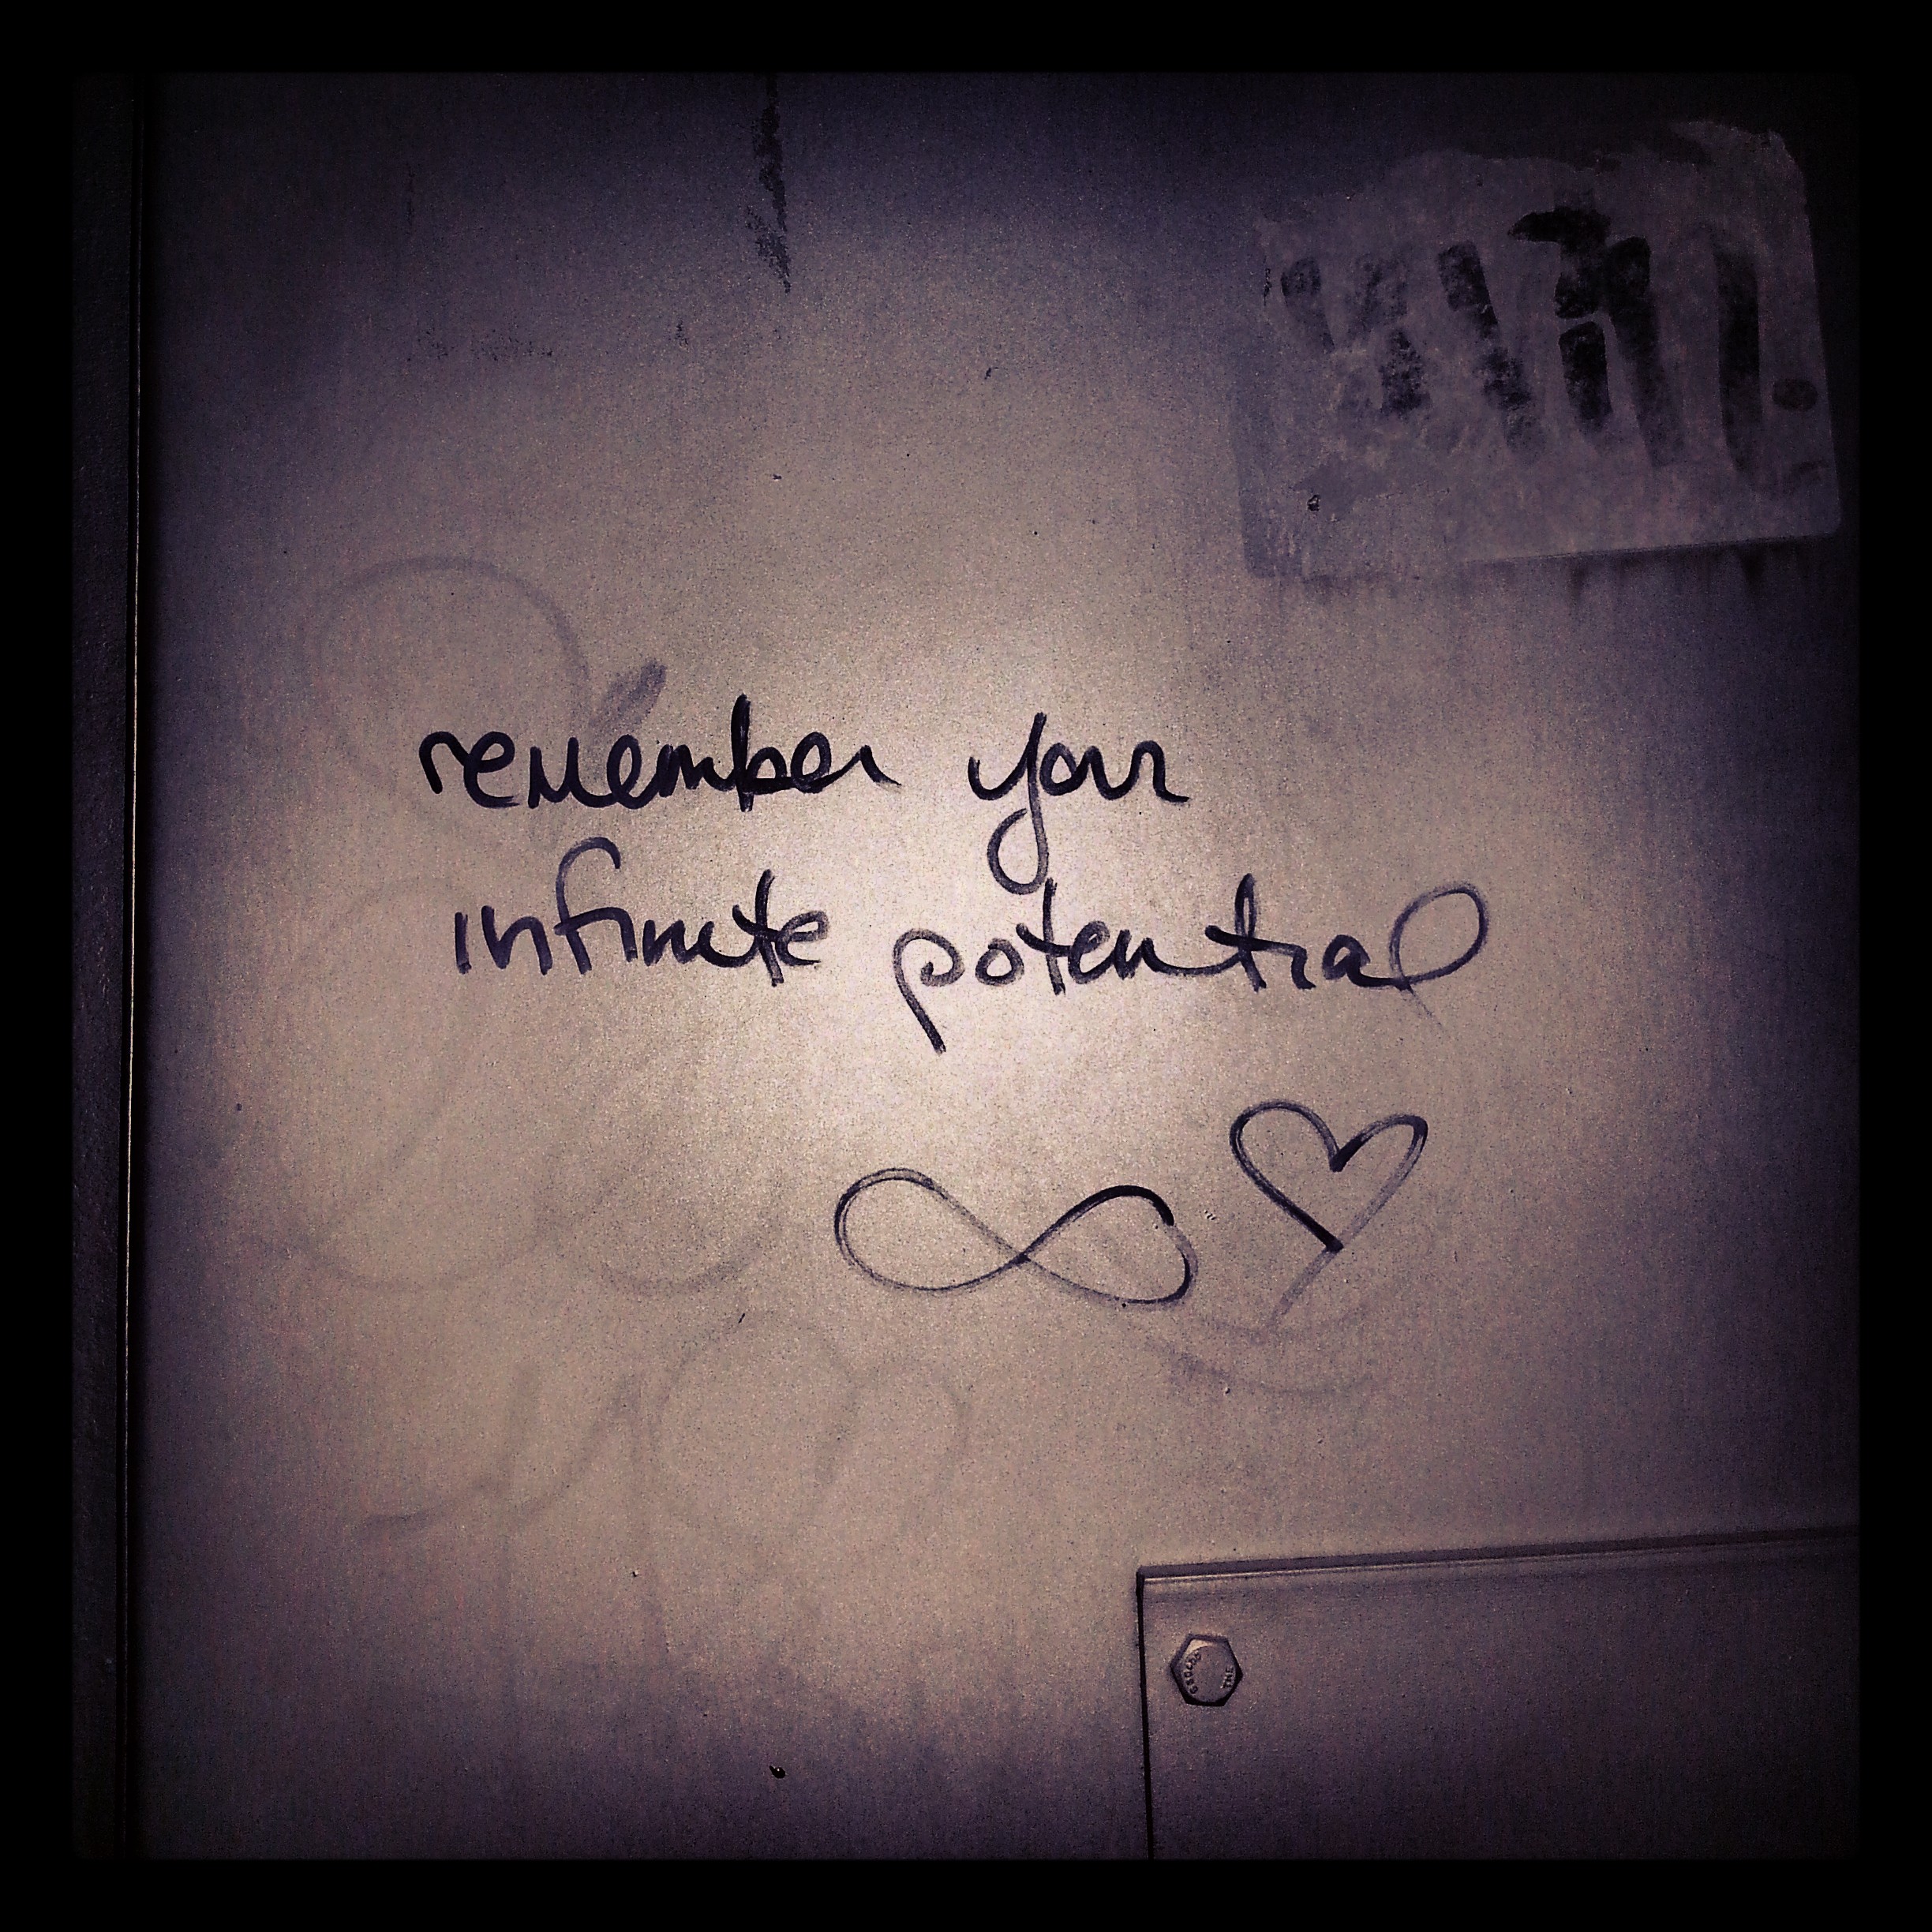 remember your
infinite potential